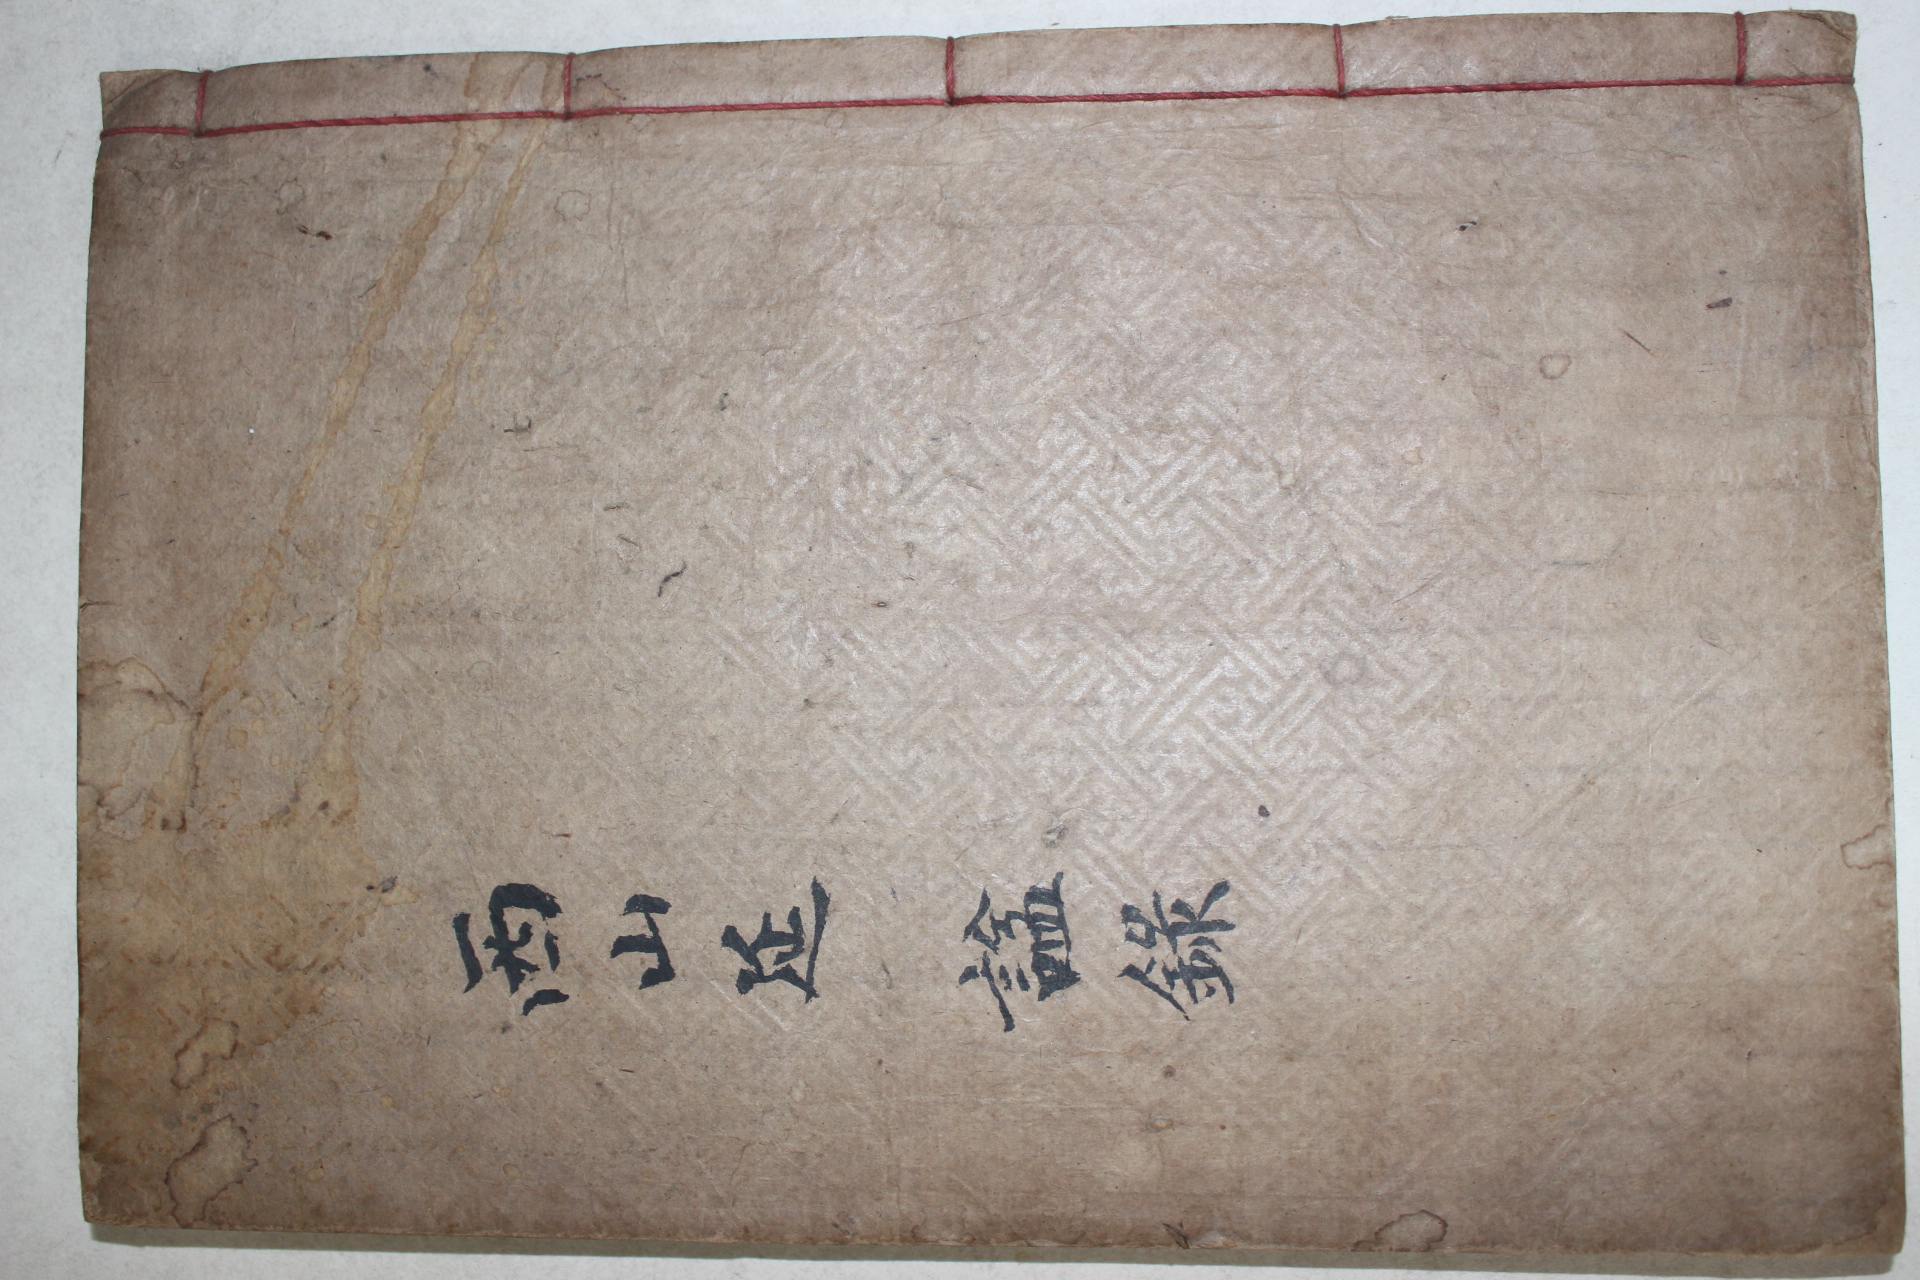 西山延諡錄